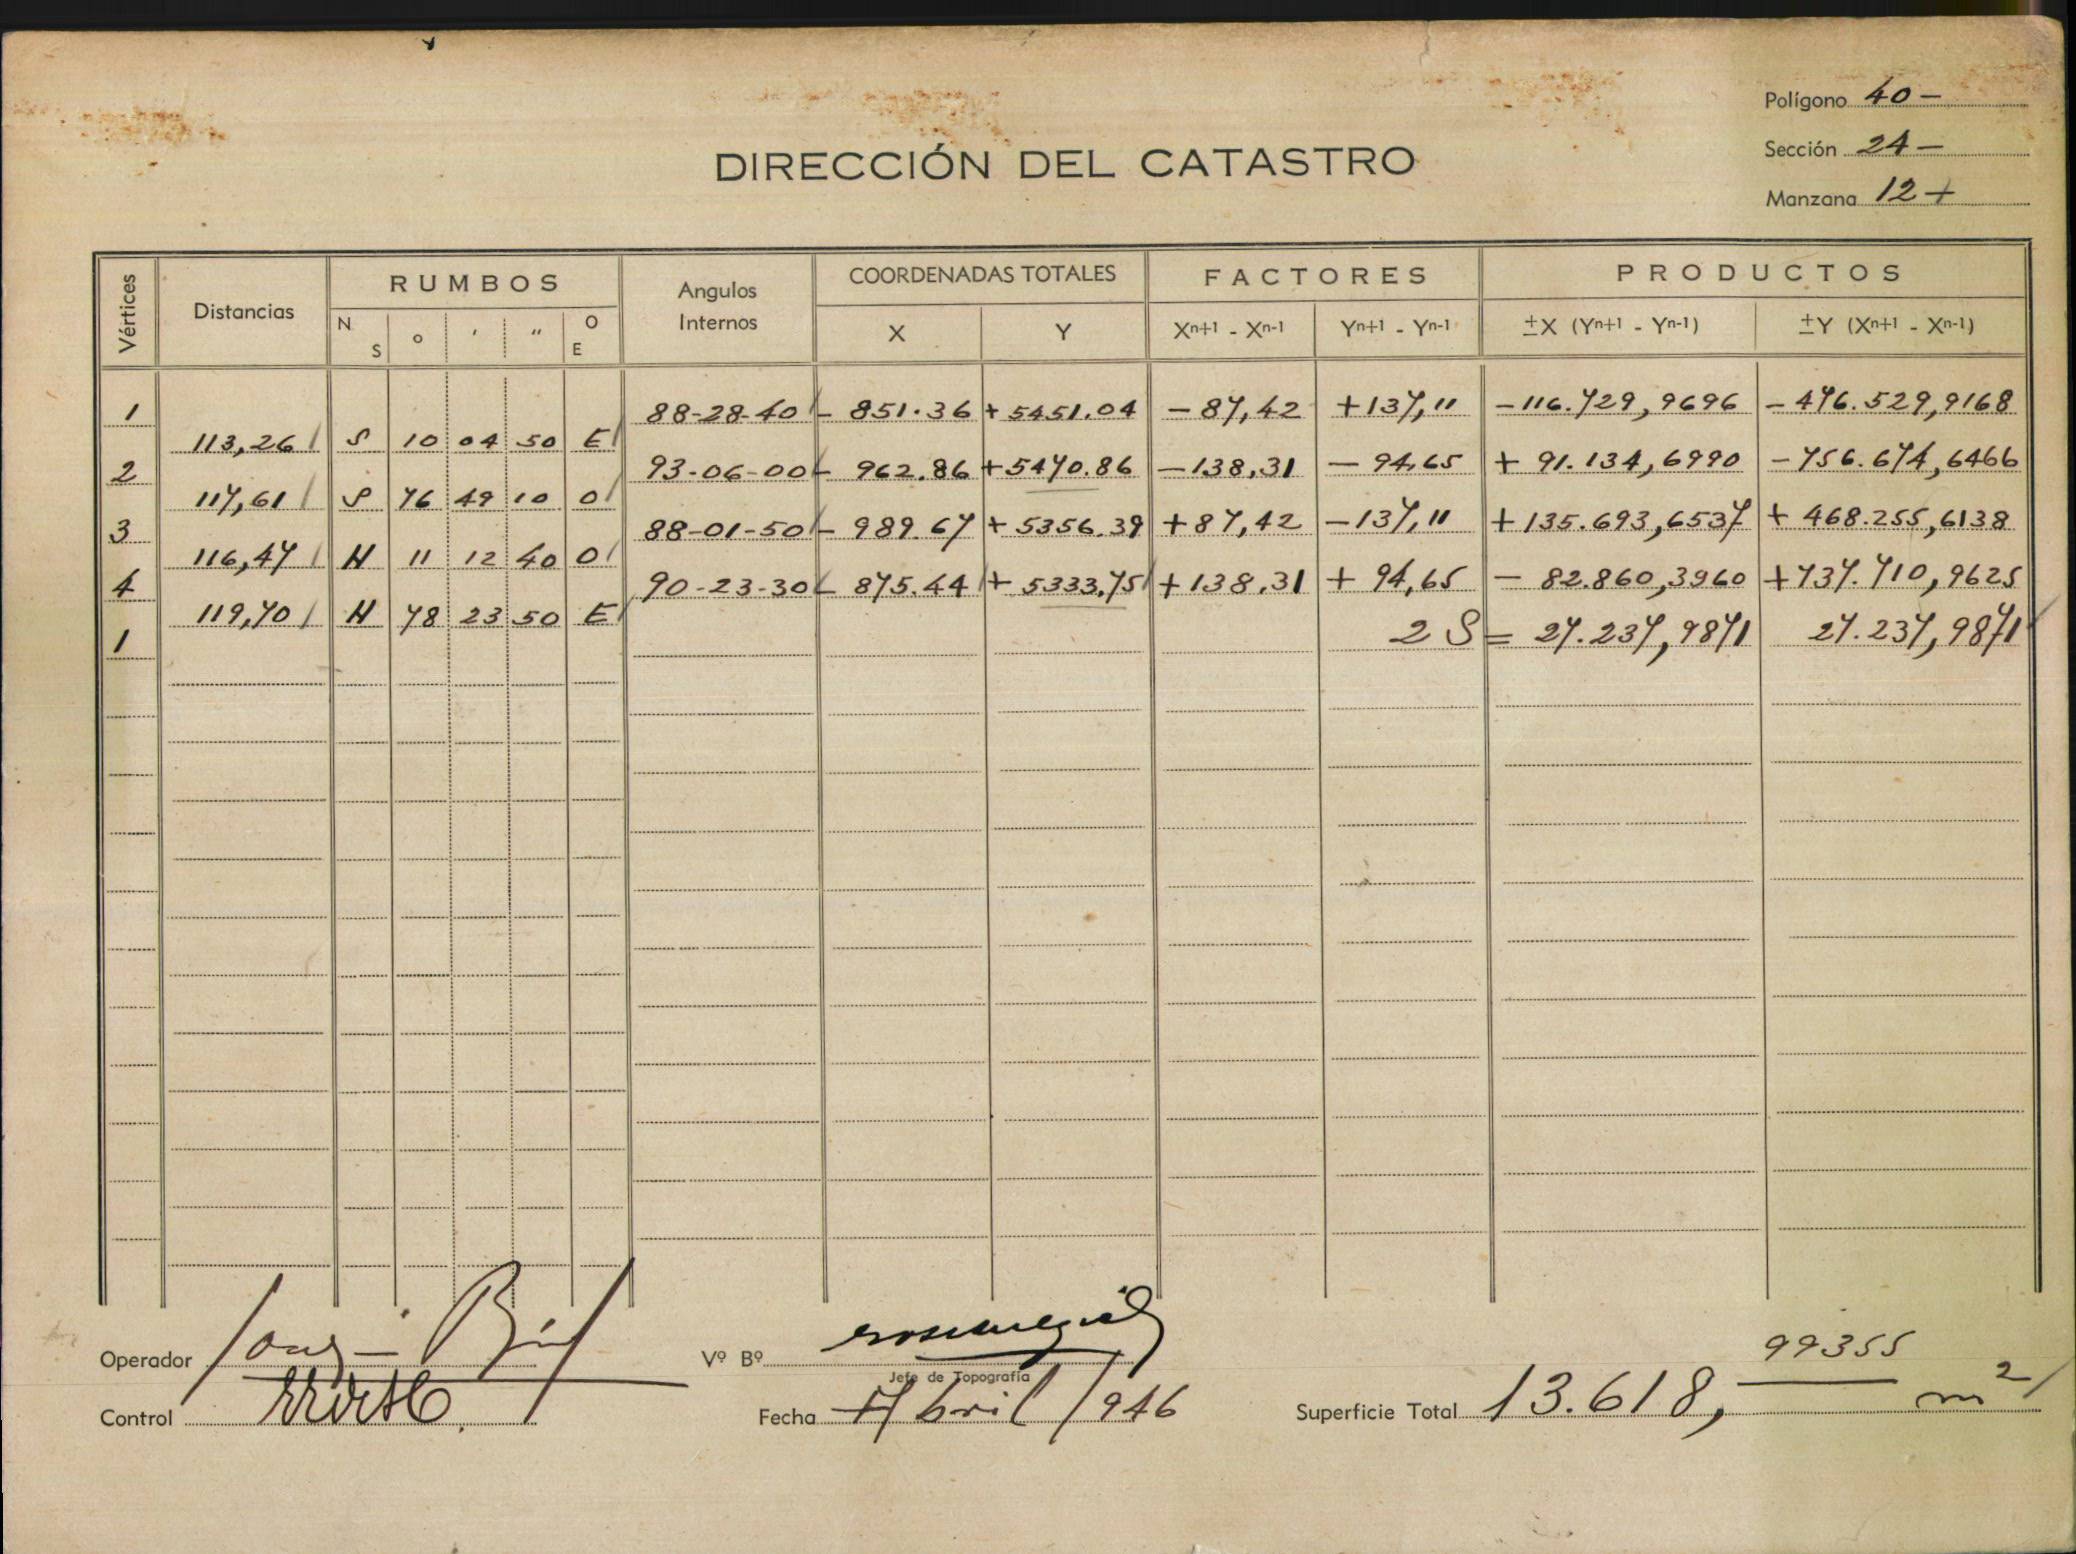 Polígono 40 -
DIRECCIÓN DEL CATASTRO
Sección 24 -
Manzana 12 +
Vértices Distancias RUMBOS Angulos Internos COORDENADAS TOTALES FACTORES PRODUCTOS
N S o ' " O E X Y Xn+1 - Xn-1 Yn+1 - Yn-1 ±X (Yn+1 - Yn-1) ±Y (Xn+1 - Xn-1)
1 88-28-40 - 851.36 + 5451.04 - 87,42 + 137,11 - 116.729,9696 - 476.529,9168
113,26 S 10 04 50 E
2 93-06-00 - 962.86 + 5470.86 - 138,31 - 94,65 + 91.134,6990 - 756.674,6466
117,61 S 76 49 10 O
3 88-01-50 - 989.67 + 5356.39 + 87,42 - 137,11 + 135.693,6537 + 468.255,6138
116,47 N 11 12 40 O
4 90-23-30 - 875.44 + 5333.75 + 138,31 + 94,65 - 82.860,3960 + 737.710,9625
119,70 N 78 23 50 E
1 2 S = 27.237,9871 27.237,9871
Operador Vº Bº
Jefe de Topografía
Control Fecha Abril/946 Superficie Total 13.618,99355 m2